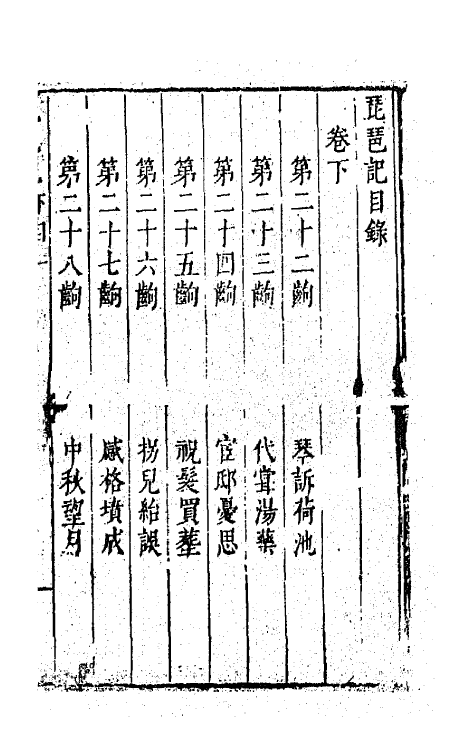 琵琶記目錄
卷下
第二十二齣 琴訴荷池
第二十三齣 代甞湯藥
第二十四齣 宦邸憂思
第二十五齣 祝髮買葬
第二十六齣 拐兒紿誤
第二十七齣 感格墳成
第二十八齣 中秋望月